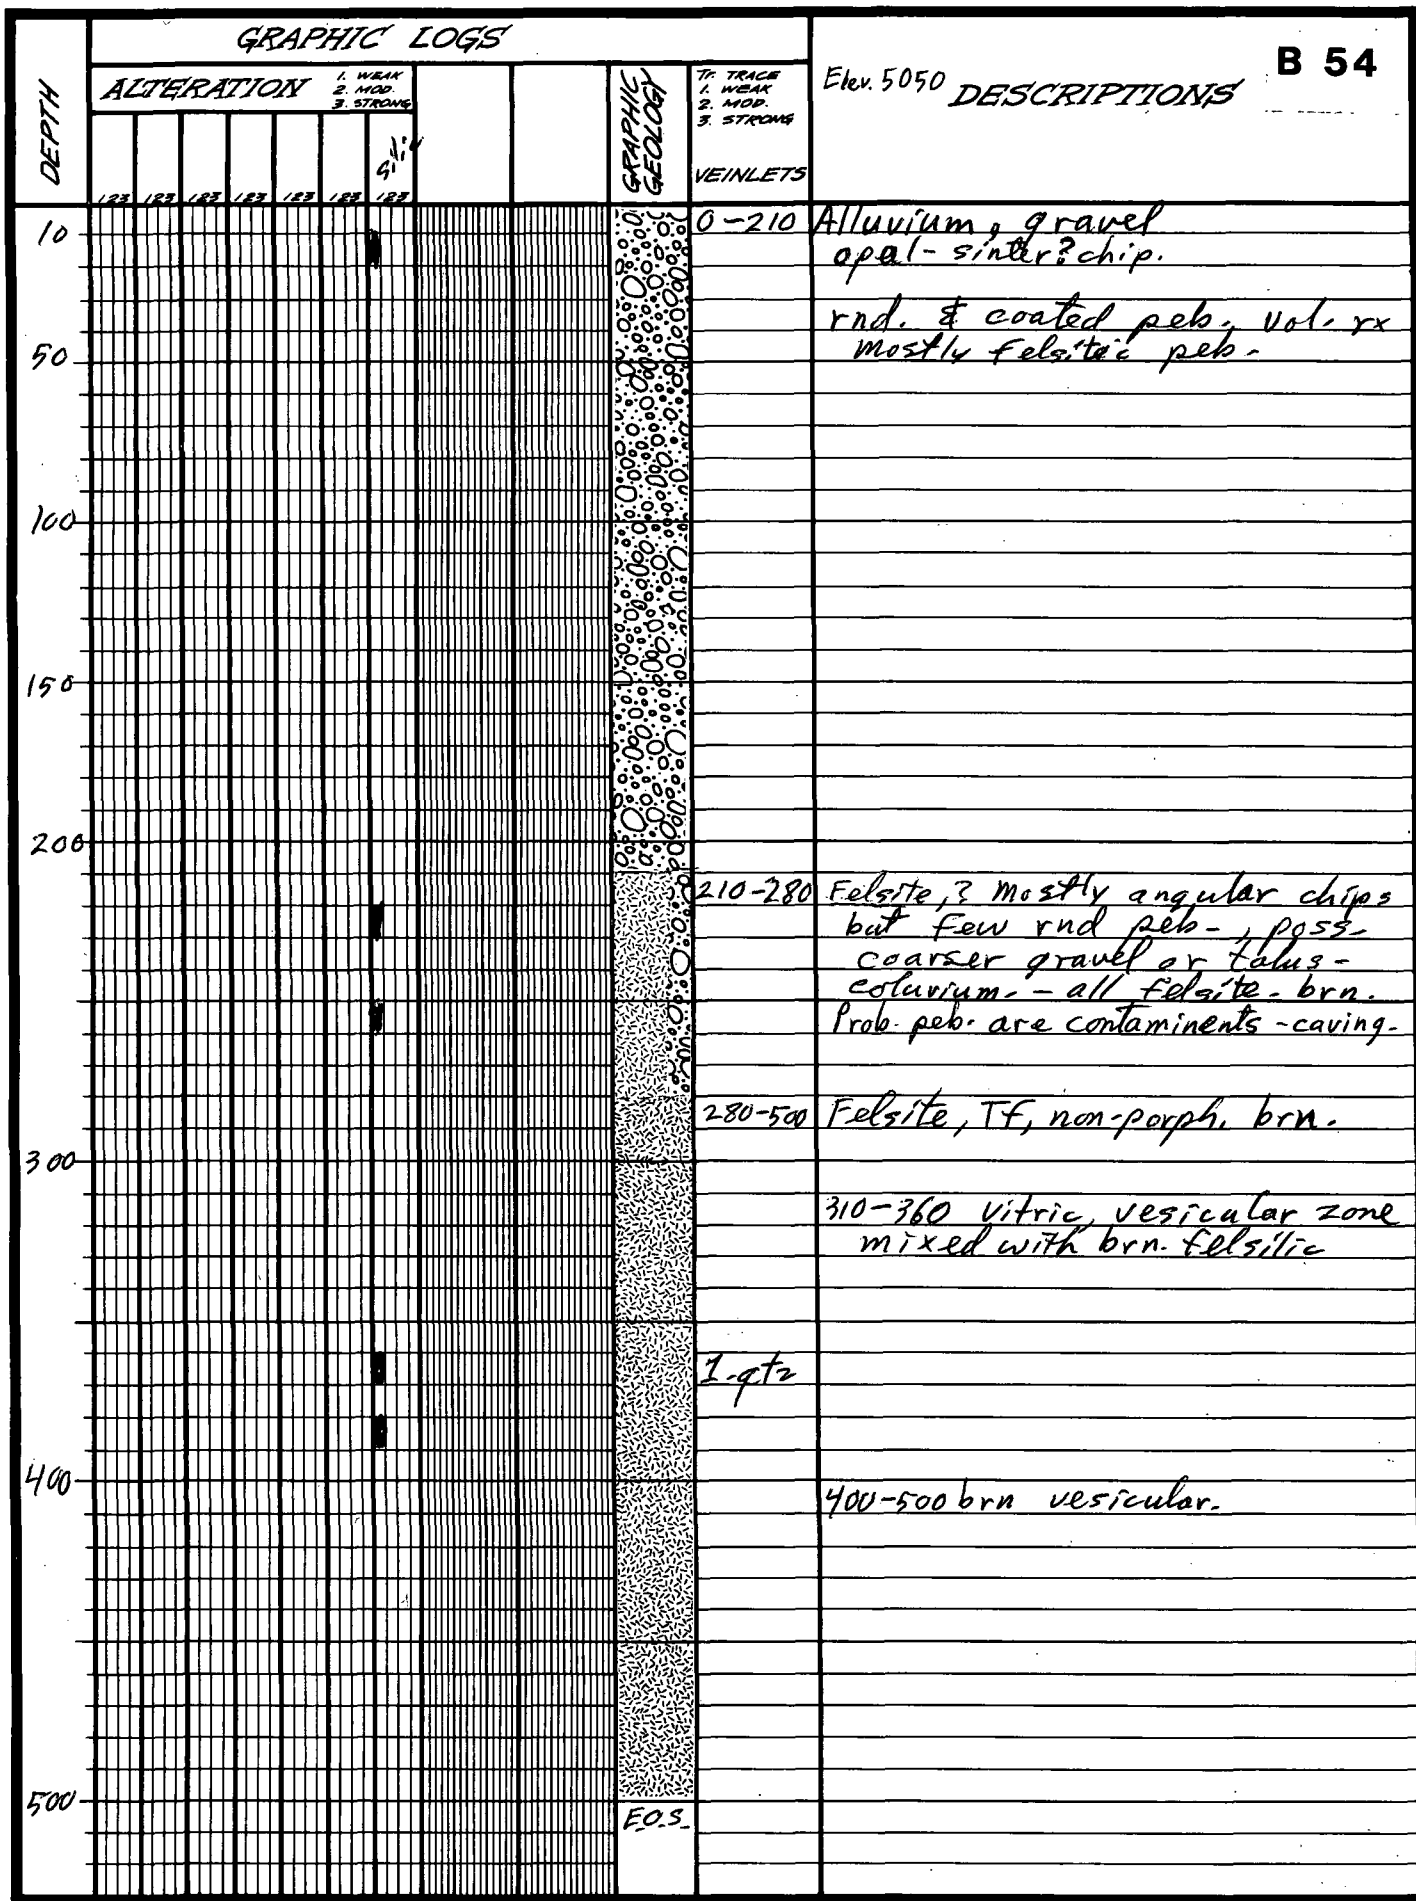 GRAPHIC LOGS
B 54
DEPTH
ALTERATION
1. WEAK
2. MOD.
3. STRONG
GRAPHIC
GEOLOGY
Tr. TRACE
1. WEAK
2. MOD.
3. STRONG
VEINLETS
Elev. 5050
DESCRIPTIONS
123 123 123 123 123 123 123
10
0-210 Alluvium, gravel
opal-sinter? chip.
rnd. & coated peb., vol. rx
50
mostly felsitic peb.
100
150
200
210-280 Felsite, ? mostly angular chips
but few rnd peb-, poss-
coarser gravel or talus-
coluvium. - all felsite - brn.
Prob. peb. are contaminents - caving.
280-500 Felsite, Tf, non-porph. brn.
300
310-360 vitric, vesicular zone
mixed with brn. felsitic
1-qtz
400
400-500 brn vesicular.
500
E.O.S.